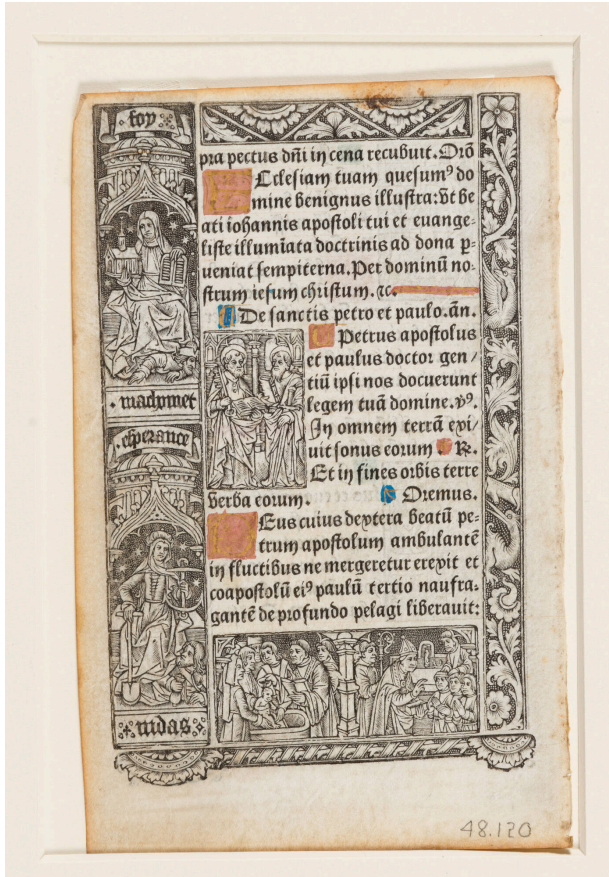 foy
machymet
esperance
iudas
pra pectus dñi in cena recubuit. Orõ
Ecclesiam tuam quesumꝰ do
mine benignus illustra: vt be
ati iohannis apostoli tui et euange-
liste illumĩata doctrinis ad dona p-
ueniat sempiterna. Per dominũ no-
strum iesum christum. ⁊c.
De sanctis petro et paulo. añ.
Petrus apostolus
et paulus doctor gen/
tiũ ipsi nos docuerunt
legem tuã domine. vꝰ.
In omnem terrã exi/
uit sonus eorum ℟.
Et in fines orbis terre
verba eorum. Oremus.
Deus cuius dextera beatũ pe-
trum apostolum ambulantẽ
in fluctibus ne mergeretur erexit et
coapostolũ eiꝰ paulũ tertio naufra-
gantẽ de profundo pelagi liberauit:
48.120